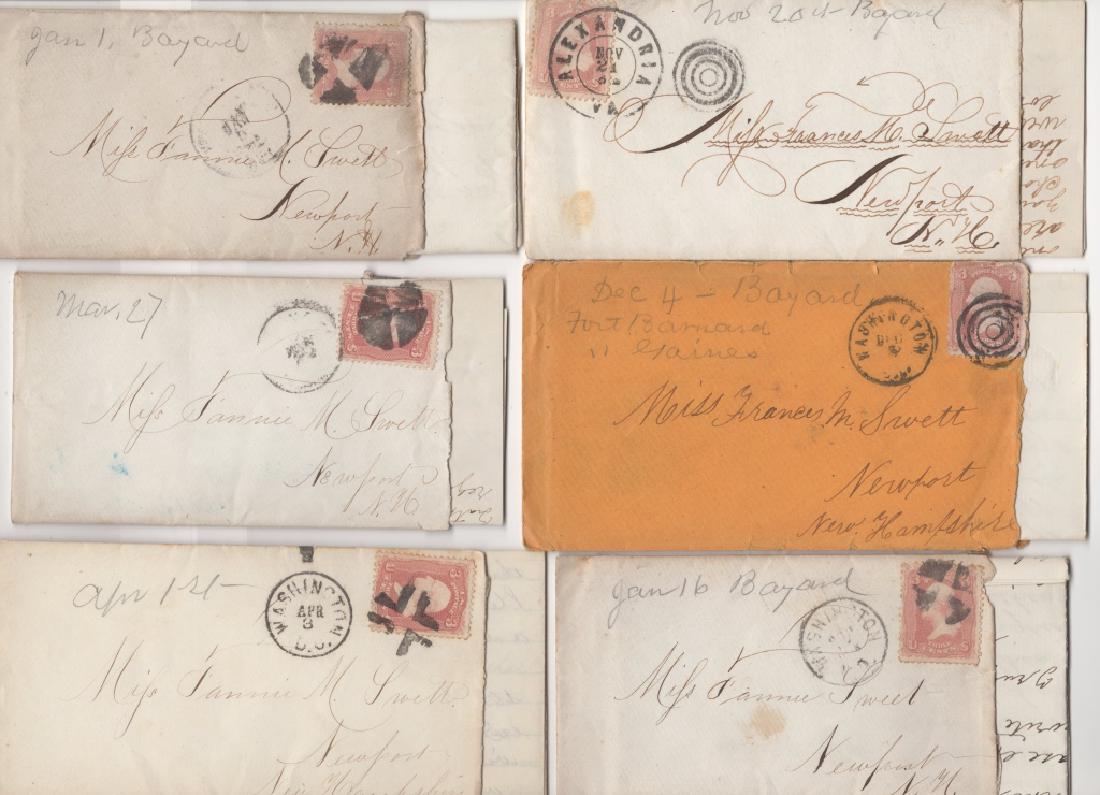 Jan 1, Bayard
Miss Fannie M. Swett
Newport
N.H.
Nov 20th Bayard
ALEXANDRIA
NOV
21
VA
Miss Frances M. Swett
Newport
N.H.
Mar. 27
Miss Fannie M. Swett
Newport
N.H.
Dec 4 - Bayard
Fort Barnard
" Gaines
WASHINGTON
DEC
Miss Frances M. Swett
Newport
New Hampshire
Apr 1st
WASHINGTON
APR
3
D.C.
U
3
Miss Fannie M Swett
Newport
New Hampshire
Jan 16 Bayard
WASHINGTON
U S
Miss Fannie Swett
Newport
N.H.